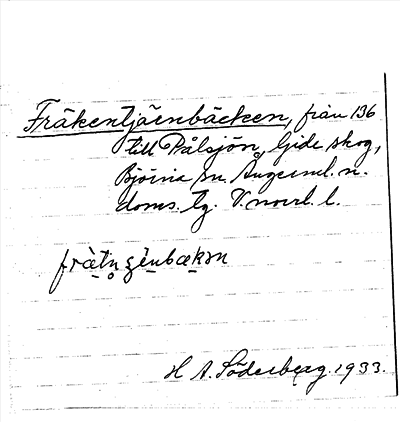 Fräkentjärnbäcken, från 136
till Pålsjön, Gide skog,
Björna sn. Ångerml. n.
doms. tg. V.norrl. l.
H. A. Söderberg. 1933.